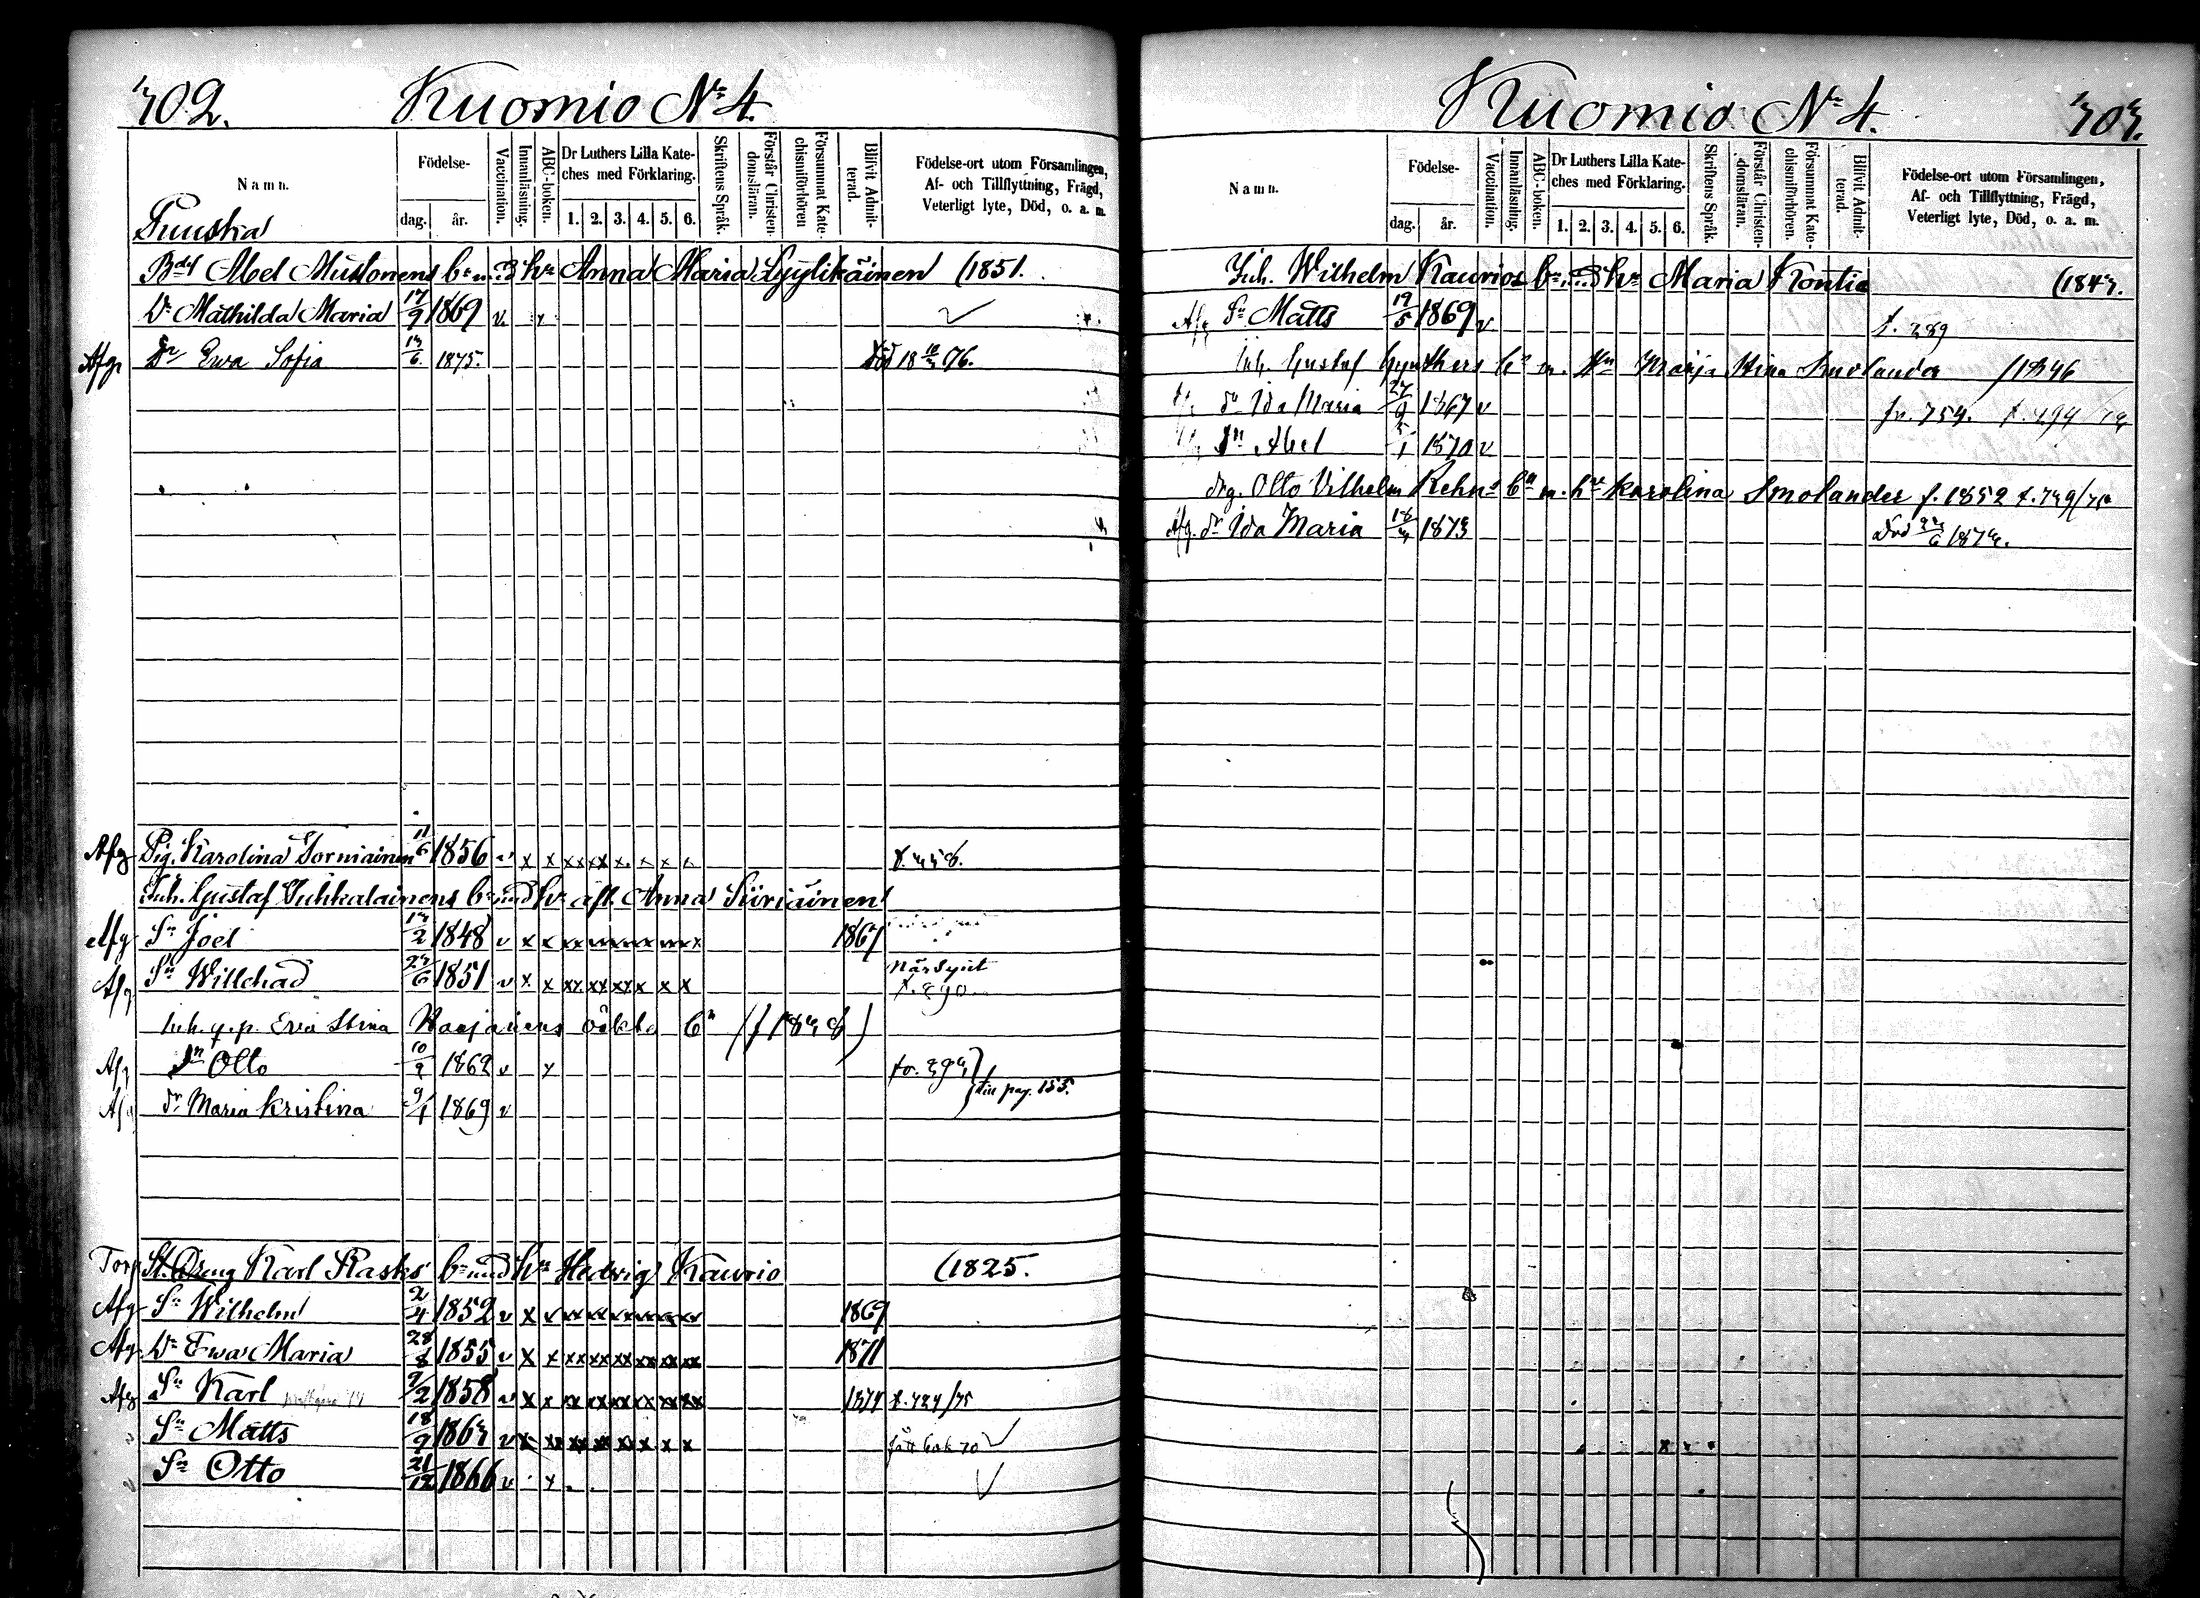 302. Kuomio No 4.
Namn.
Födelse-
dag.
år.
Vaccination.
Innanläsning.
ABC-boken.
Dr Luthers Lilla Kate-
ches med Förklaring.
1. 2. 3. 4. 5. 6.
Skriftens Språk.
Förstår Christen-
domsläran.
Försummat Kate-
chismiförhören
Blifvit Admit-
terad.
Födelse-ort utom Församlingen,
Af- och Tillflyttning, Frägd,
Veterligt lyte, Död, o. a. m.
Puuska
Abel Mustonens bn und hu Anna Maria Lyylikäinen (1851.
Dr Mathilda Maria 17/9 1869 v
Afg Dr Ewa Sofia 13/6 1875. Död 76.
Afg Pig. Karolina Torniainen 11/6 1856 v x x xx xx x x x x
Inh. Gustaf Juhkalainens bn und hu afl. Anna Siiriäinen
Afg Sn Joel 13/2 1848 v x x 1867
Afg Sn Willehad 1851 v x x xx xx xx x x x Närsynt
t. 290
Inh. q.p. Eva Stina oäkta bn (f 1838)
Afg Sn Otto 10/9 1862 v till pag. 155.
Afg dr Maria Kristina 9/1 1869 v
Torp St. Dreng Karl Rasks bn und hu Hedvig Kaurio (1825.
Afg Sn Wilhelm 2/4 1852 v x 1869
Afg Dr Ewa Maria 28/8 1855 v x x xx xx xx xx xx xx 1871
Afg Sn Karl 9/2 1858 v x x xx xx xx xx xx xx 1874 t. 729/75
Sn Matts 18/9 1863 v x
Sn Otto 21/12 1866 v
Kuomio No 4. 303.
Namn.
Födelse-
dag.
år.
Vaccination.
Innanläsning.
ABC-boken.
Dr Luthers Lilla Kate-
ches med Förklaring.
1. 2. 3. 4. 5. 6.
Skriftens Språk.
Förstår Christen-
domsläran.
Försummat Kate-
chismiförhören.
Blifvit Admit-
terad.
Födelse-ort utom Församlingen,
Af- och Tillflyttning, Frägd,
Veterligt lyte, Död, o. a. m.
Inh. Wilhelm Kaurios bn und hu Maria Kontia (1843.
Afg Sn Matts 19/5 1869 v t. 289
Inh. Gustaf bn m. Hu Maija Stina Smolander /1846
dr Ida Maria 27/9 1867 v fr. 754.
Sn Abel 1870 v
drg. Otto Vilhelm Rehns bn m. hu Karolina Smolander f. 1852
Afg. dr Ida Maria 1873 Död 1873.